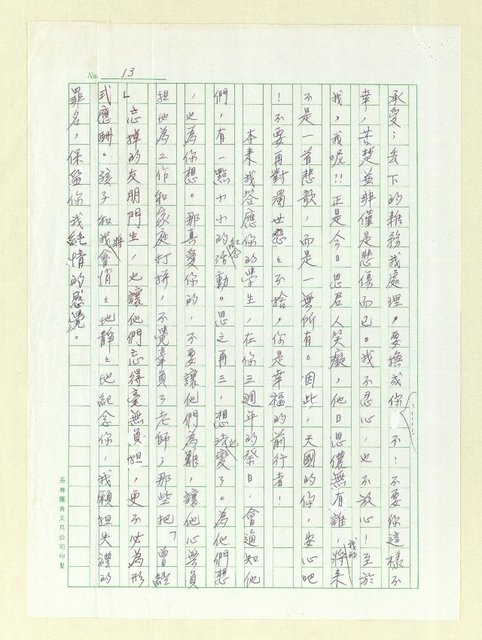 No. 13
承受；丟下的雜務我處理，要撫或你 不！不要你這樣不
幸，苦楚並非僅是悲傷而已。我不忍心，也不放心！至於
我，我呢？？正是今日思君人笑癡，他日思儂無有誰，我的將來
不是一首悲歌，而是一無所有。因此，天國的你，安心吧
！不要再對濁世戀戀不捨，你是幸福的前行者！
本來我答應你的學生，在你三週年的祭日，會通知他
們，有一點小小的紀念活動。思之再三，想法也變了。為他們想
，也為你想。那真愛你的，不要讓他們為難，讓他心無負
担地為工作和家庭打拼，不覺辜負了老師；那些把「曾經
」忘掉的友朋門生，也讓他們忘得毫無負担，更不必為形
式應酬。孩子和我將會悄悄地靜靜地紀念你，我願担失禮的
罪名，保留你我純情的感覺。
長興國書文具公司印製